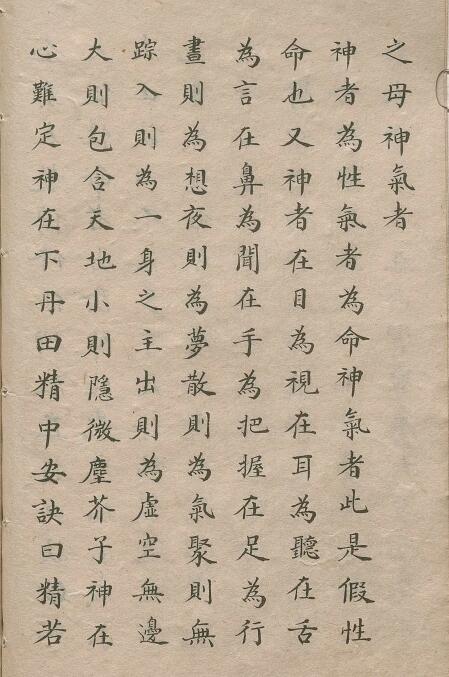 之母神氣者
神者為性氣者為命神氣者此是假性
命也又神者在目為視在耳為聽在舌
為言在鼻為聞在手為把握在足為行
晝則為想夜則為夢散則為氣聚則無
踪入則為一身之主出則為虛空無邊
大則包含天地小則隱微塵芥子神在
心難定神在下丹田精中安訣曰精若